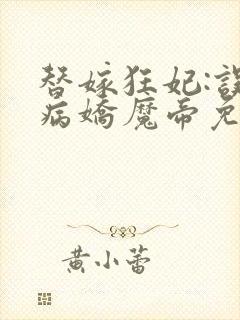 替嫁狂妃:誤
病嬌魔帝免
黃小蕾